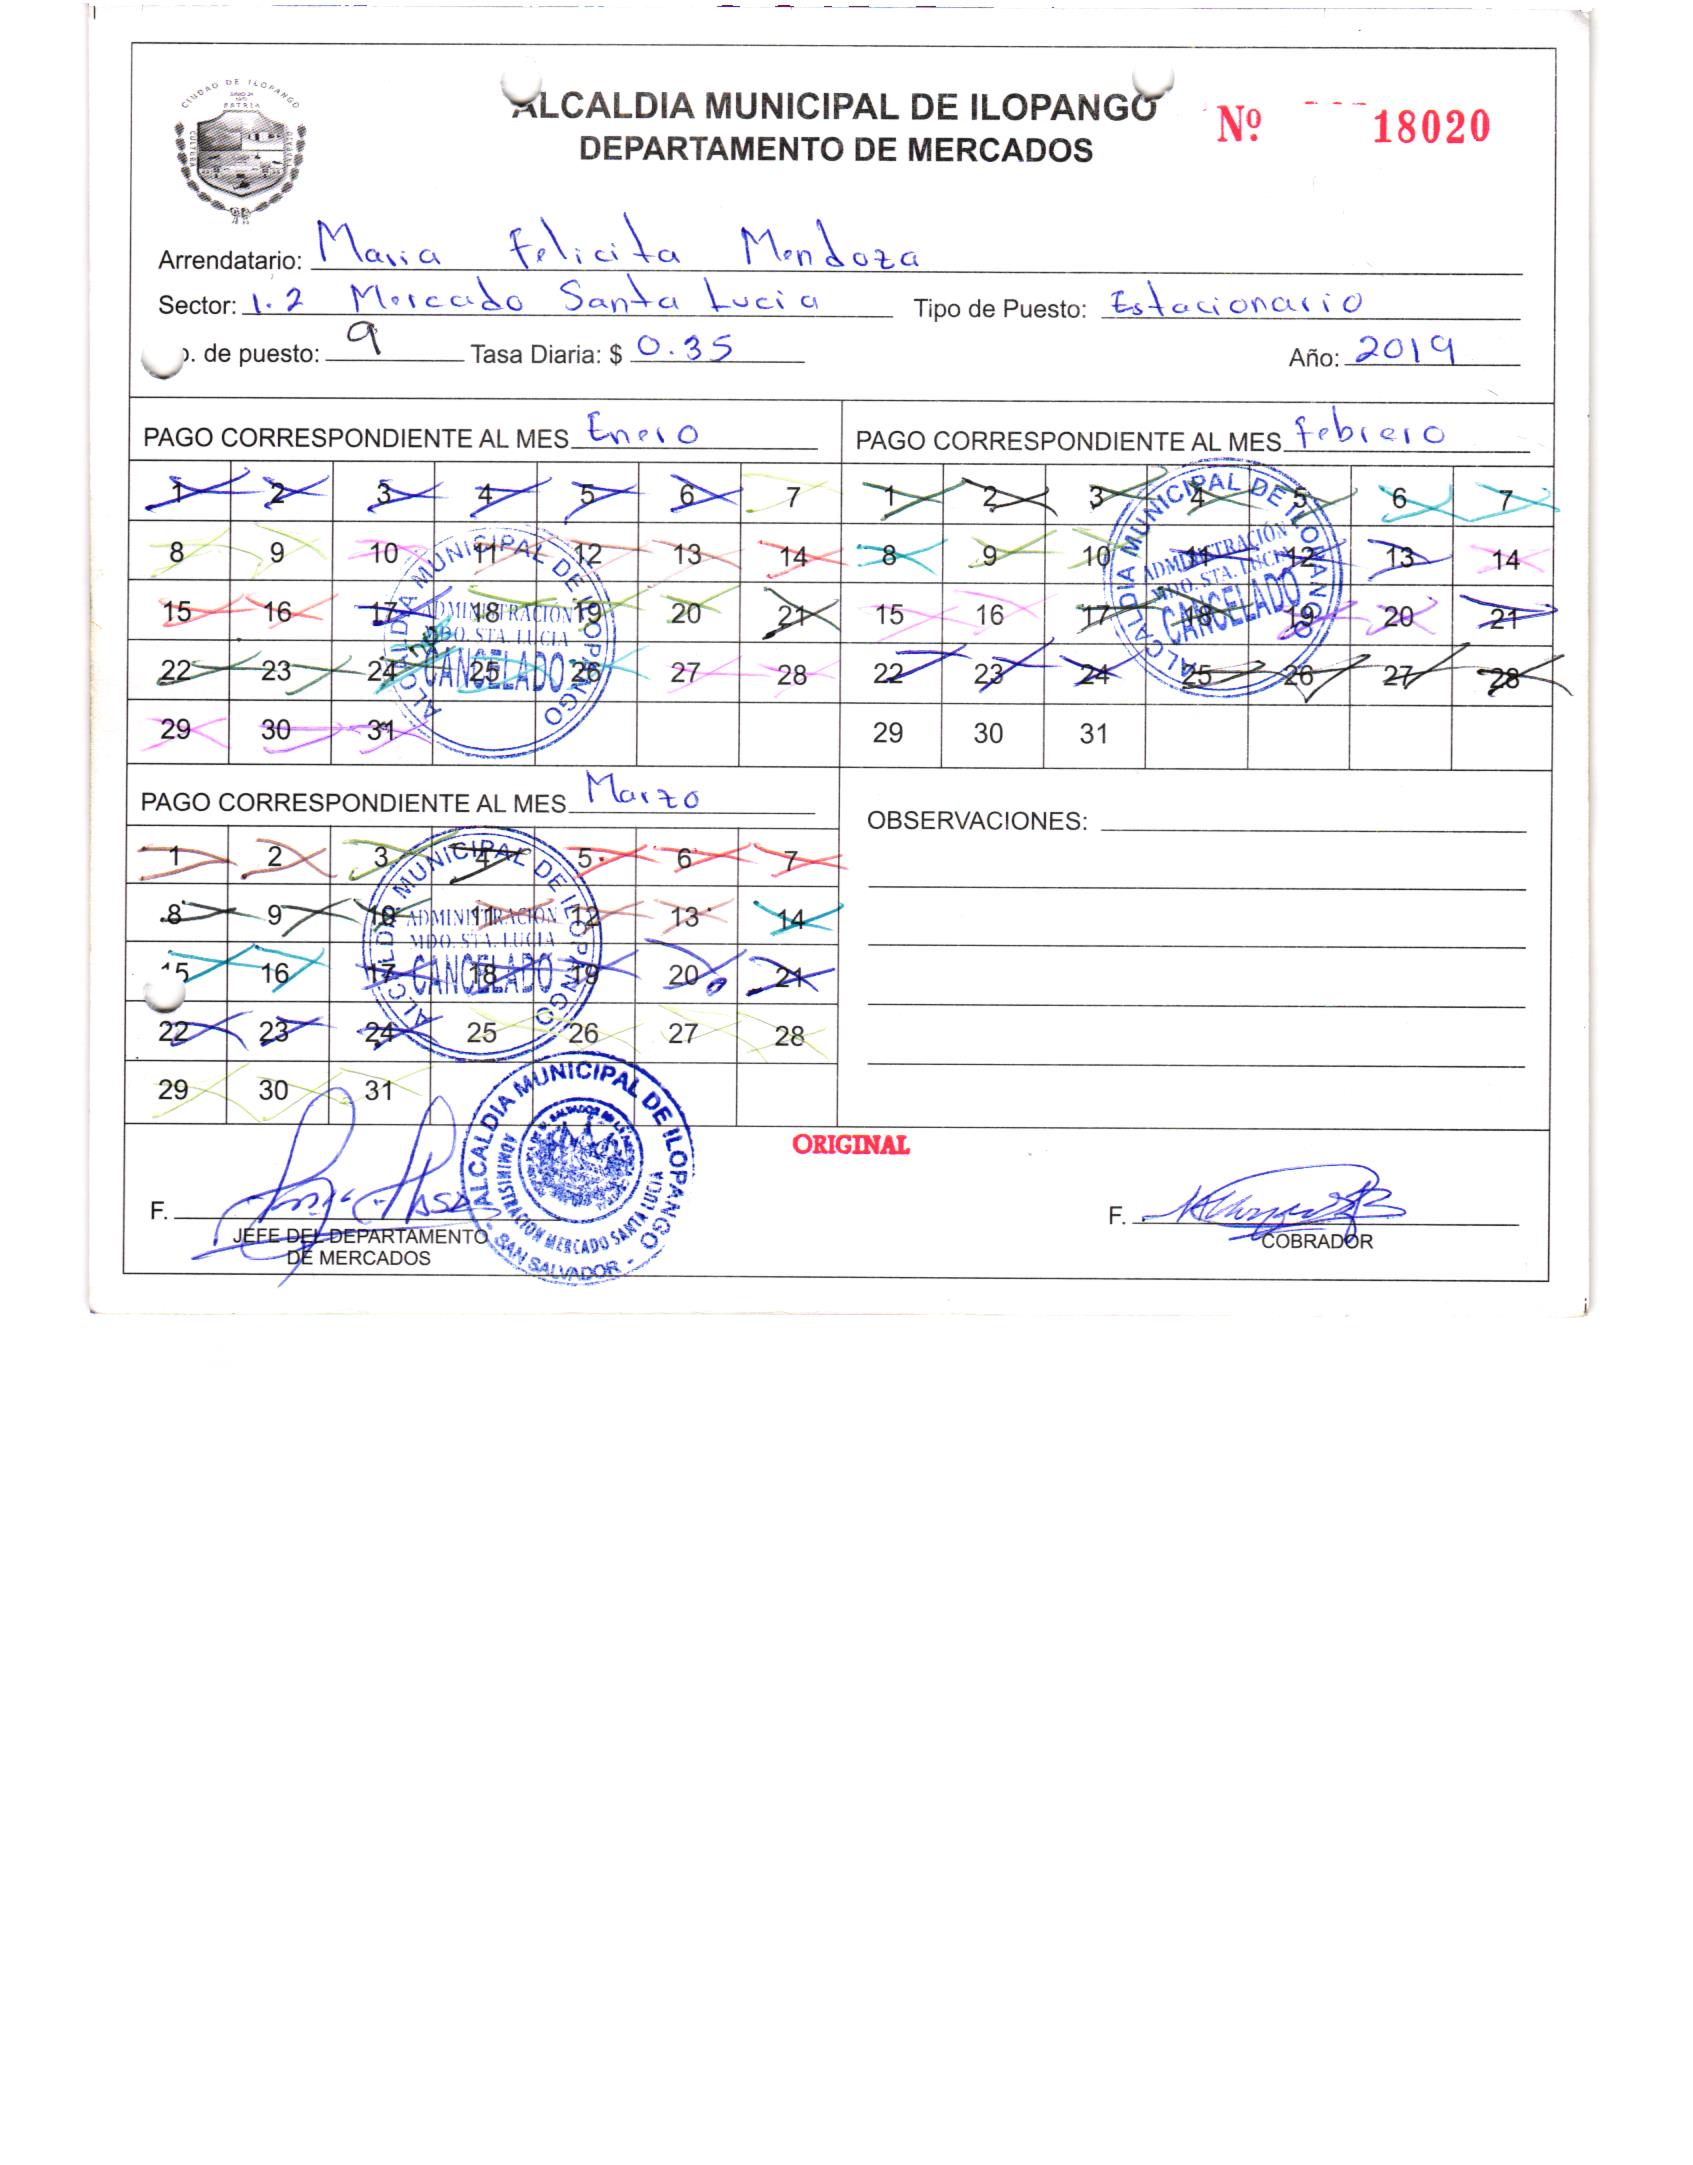 CIUDAD DE ILOPANGO
PATRIA
CULTURA
ALCALDIA MUNICIPAL DE ILOPANGO
DEPARTAMENTO DE MERCADOS
Nº 18020
Arrendatario: Maria Felicita Mendoza
Sector: 1.2 Mercado Santa Lucia Tipo de Puesto: Estacionario
o. de puesto: 9 Tasa Diaria: $ 0.35 Año: 2019
PAGO CORRESPONDIENTE AL MES Enero
1 2 3 4 5 6 7
8 9 10 11 12 13 14
15 16 17 18 19 20 21
22 23 24 25 26 27 28
29 30 31
ALCALDIA MUNICIPAL DE ILOPANGO
ADMINISTRACIÓN
MDO. STA. LUCIA
CANCELADO
PAGO CORRESPONDIENTE AL MES Febrero
1 2 3 4 5 6 7
8 9 10 11 12 13 14
15 16 17 18 19 20 21
22 23 24 25 26 27 28
29 30 31
ALCALDIA MUNICIPAL DE ILOPANGO
ADMINISTRACIÓN
MDO. STA. LUCIA
CANCELADO
PAGO CORRESPONDIENTE AL MES Marzo
1 2 3 4 5 6 7
8 9 10 11 12 13 14
15 16 17 18 19 20 21
22 23 24 25 26 27 28
29 30 31
ALCALDIA MUNICIPAL DE ILOPANGO
ADMINISTRACIÓN
MDO. STA. LUCIA
CANCELADO
OBSERVACIONES:
ORIGINAL
F.
JEFE DEL DEPARTAMENTO
DE MERCADOS
ALCALDIA MUNICIPAL DE ILOPANGO
ADMINISTRACION MERCADO SANTA LUCIA
- SAN SALVADOR -
F.
COBRADOR